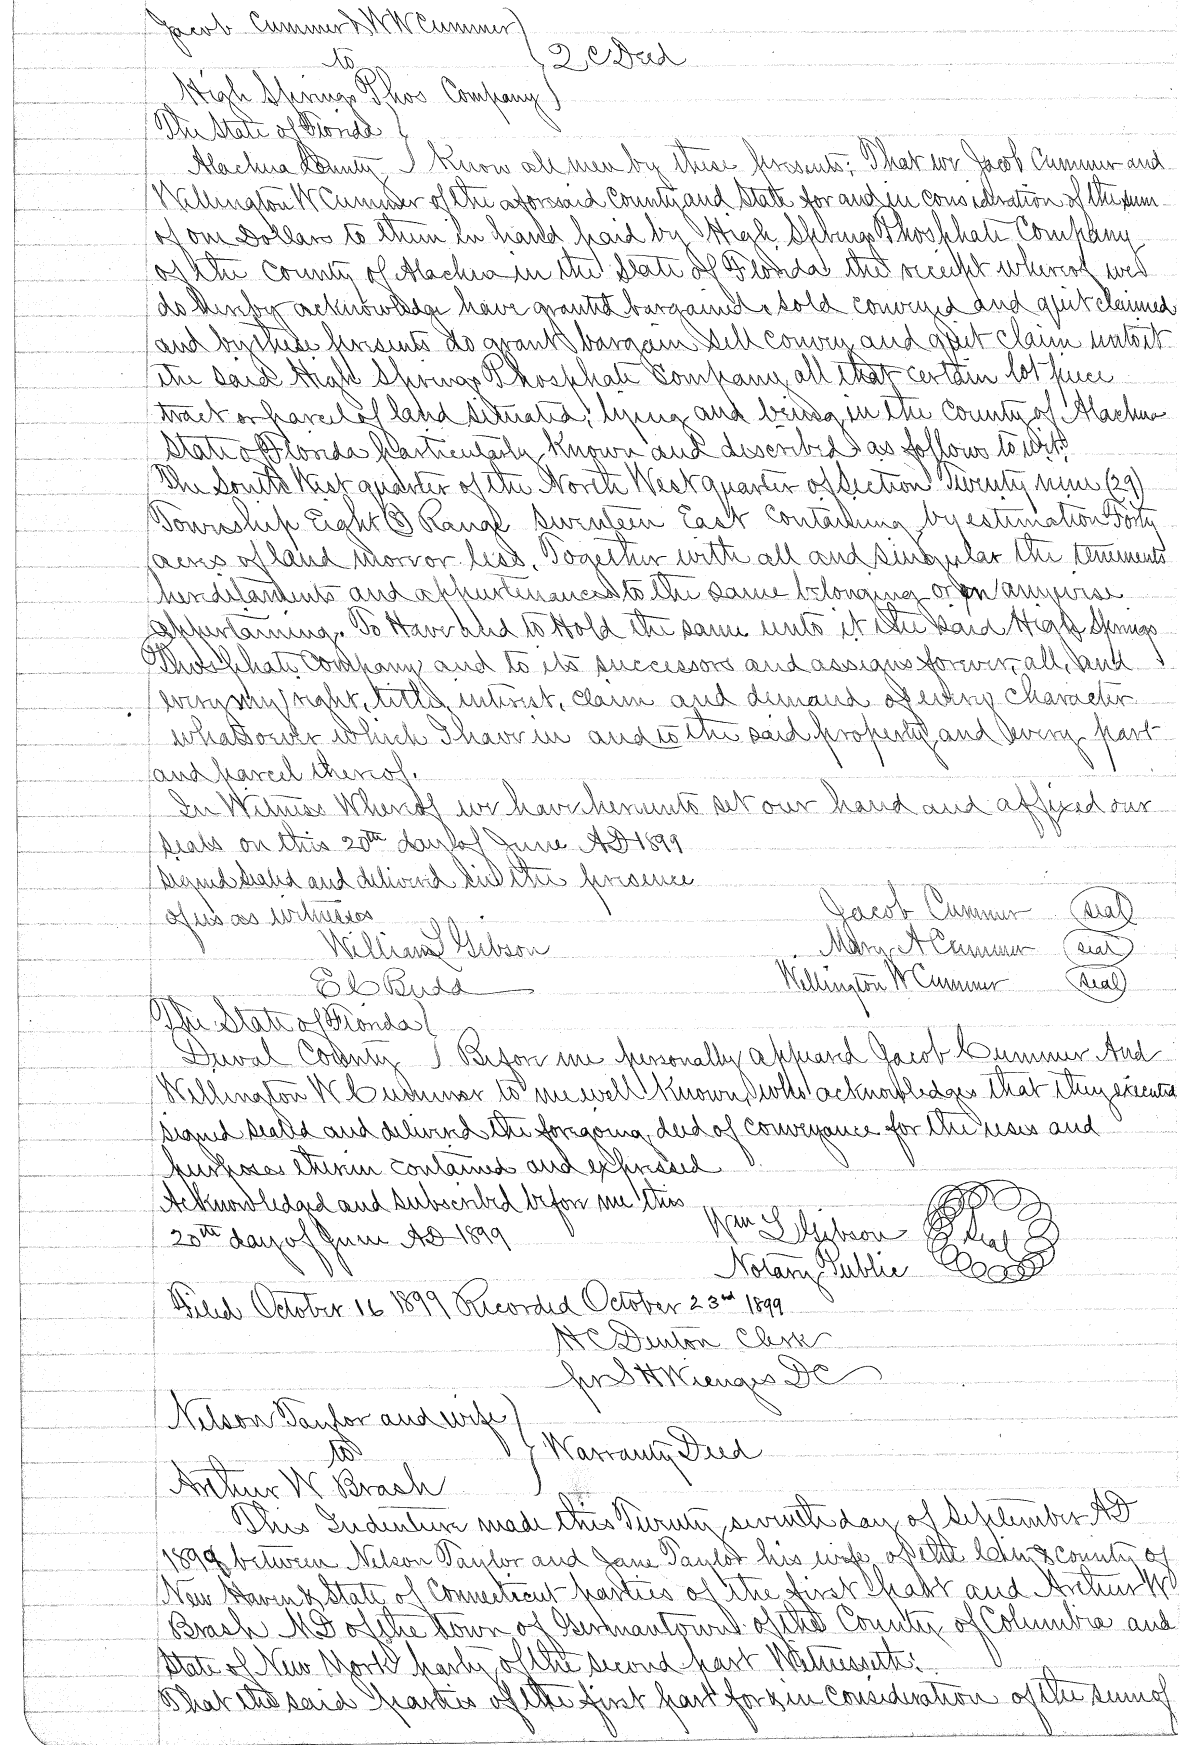 Jacob Cummer & W W Cummer
to
2 C Deed
High Springs Phos Company
The State of Florida
Alachua County Know all men by these presents; That we Jacob Cummer and
Wellington W Cummer of the aforesaid County and State for and in consideration of the sum
of one Dollars to them in hand paid by High Springs Phosphate Company
of the County of Alachua in the State of Florida the receipt whereof we
do hereby acknowledge have granted bargained sold conveyed and quit claimed
and by these presents do grant bargain sell convey and quit claim unto it
the said High Springs Phosphate Company all that certain lot piece
tract or parcel of land situated, lying and being in the County of Alachua
State of Florida particularly known and described as follows to wit:
The South West quarter of the North West quarter of Section Twenty nine (29)
Township Eight (8) Range Seventeen East containing by estimation Forty
acres of land more or less. Together with all and singular the tenements
hereditaments and appurtenances to the same belonging or in anywise
appertaining. To Have and to Hold the same unto it the said High Springs
Phosphate Company and to its successors and assigns forever, all, and
every my right, title, interest, claim and demand of every character
whatsoever which I have in and to the said property and every part
and parcel thereof.
In Witness Whereof we have hereunto set our hand and affixed our
seals on this 20th day of June AD 1899
Signed sealed and delivered in the presence
of us as witnesses
Jacob Cummer seal
William L Gibson
Mary A Cummer seal
E C Budd
Wellington W Cummer seal
The State of Florida
Duval County Before me personally appeared Jacob Cummer And
Wellington W Cummer to me well known, who acknowledges that they executed
signed sealed and delivered the foregoing deed of conveyance for the uses and
purposes therein contained and expressed
Acknowledged and subscribed before me this
20th day of June AD 1899
Wm L Gibson Seal
Notary Public
Filed October 16 1899 Recorded October 23rd 1899
H C Denton Clerk
pr S H Wienges DC
Nelson Taylor and wife
to
Warranty Deed
Arthur W Brash
This Indenture made this Twenty seventh day of September AD
1899 between Nelson Taylor and Jane Taylor his wife of the City & county of
New Haven & State of Connecticut parties of the first part and Arthur W
Brash MD of the town of Germantown of the County of Columbia and
State of New York party of the second part Witnesseth:
That the said parties of the first part for & in consideration of the sum of